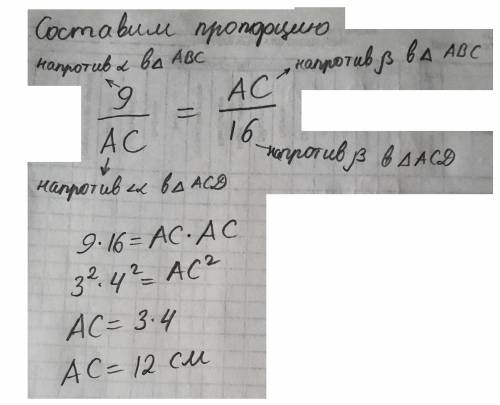 Составим пропорцию
напротив α в △ ABC
напротив β в △ ABC
9/AC = AC/16
напротив β в △ ACD
напротив ∠α в △ ACD
9·16 = AC·AC
3²·4² = AC²
AC = 3·4
AC = 12 см